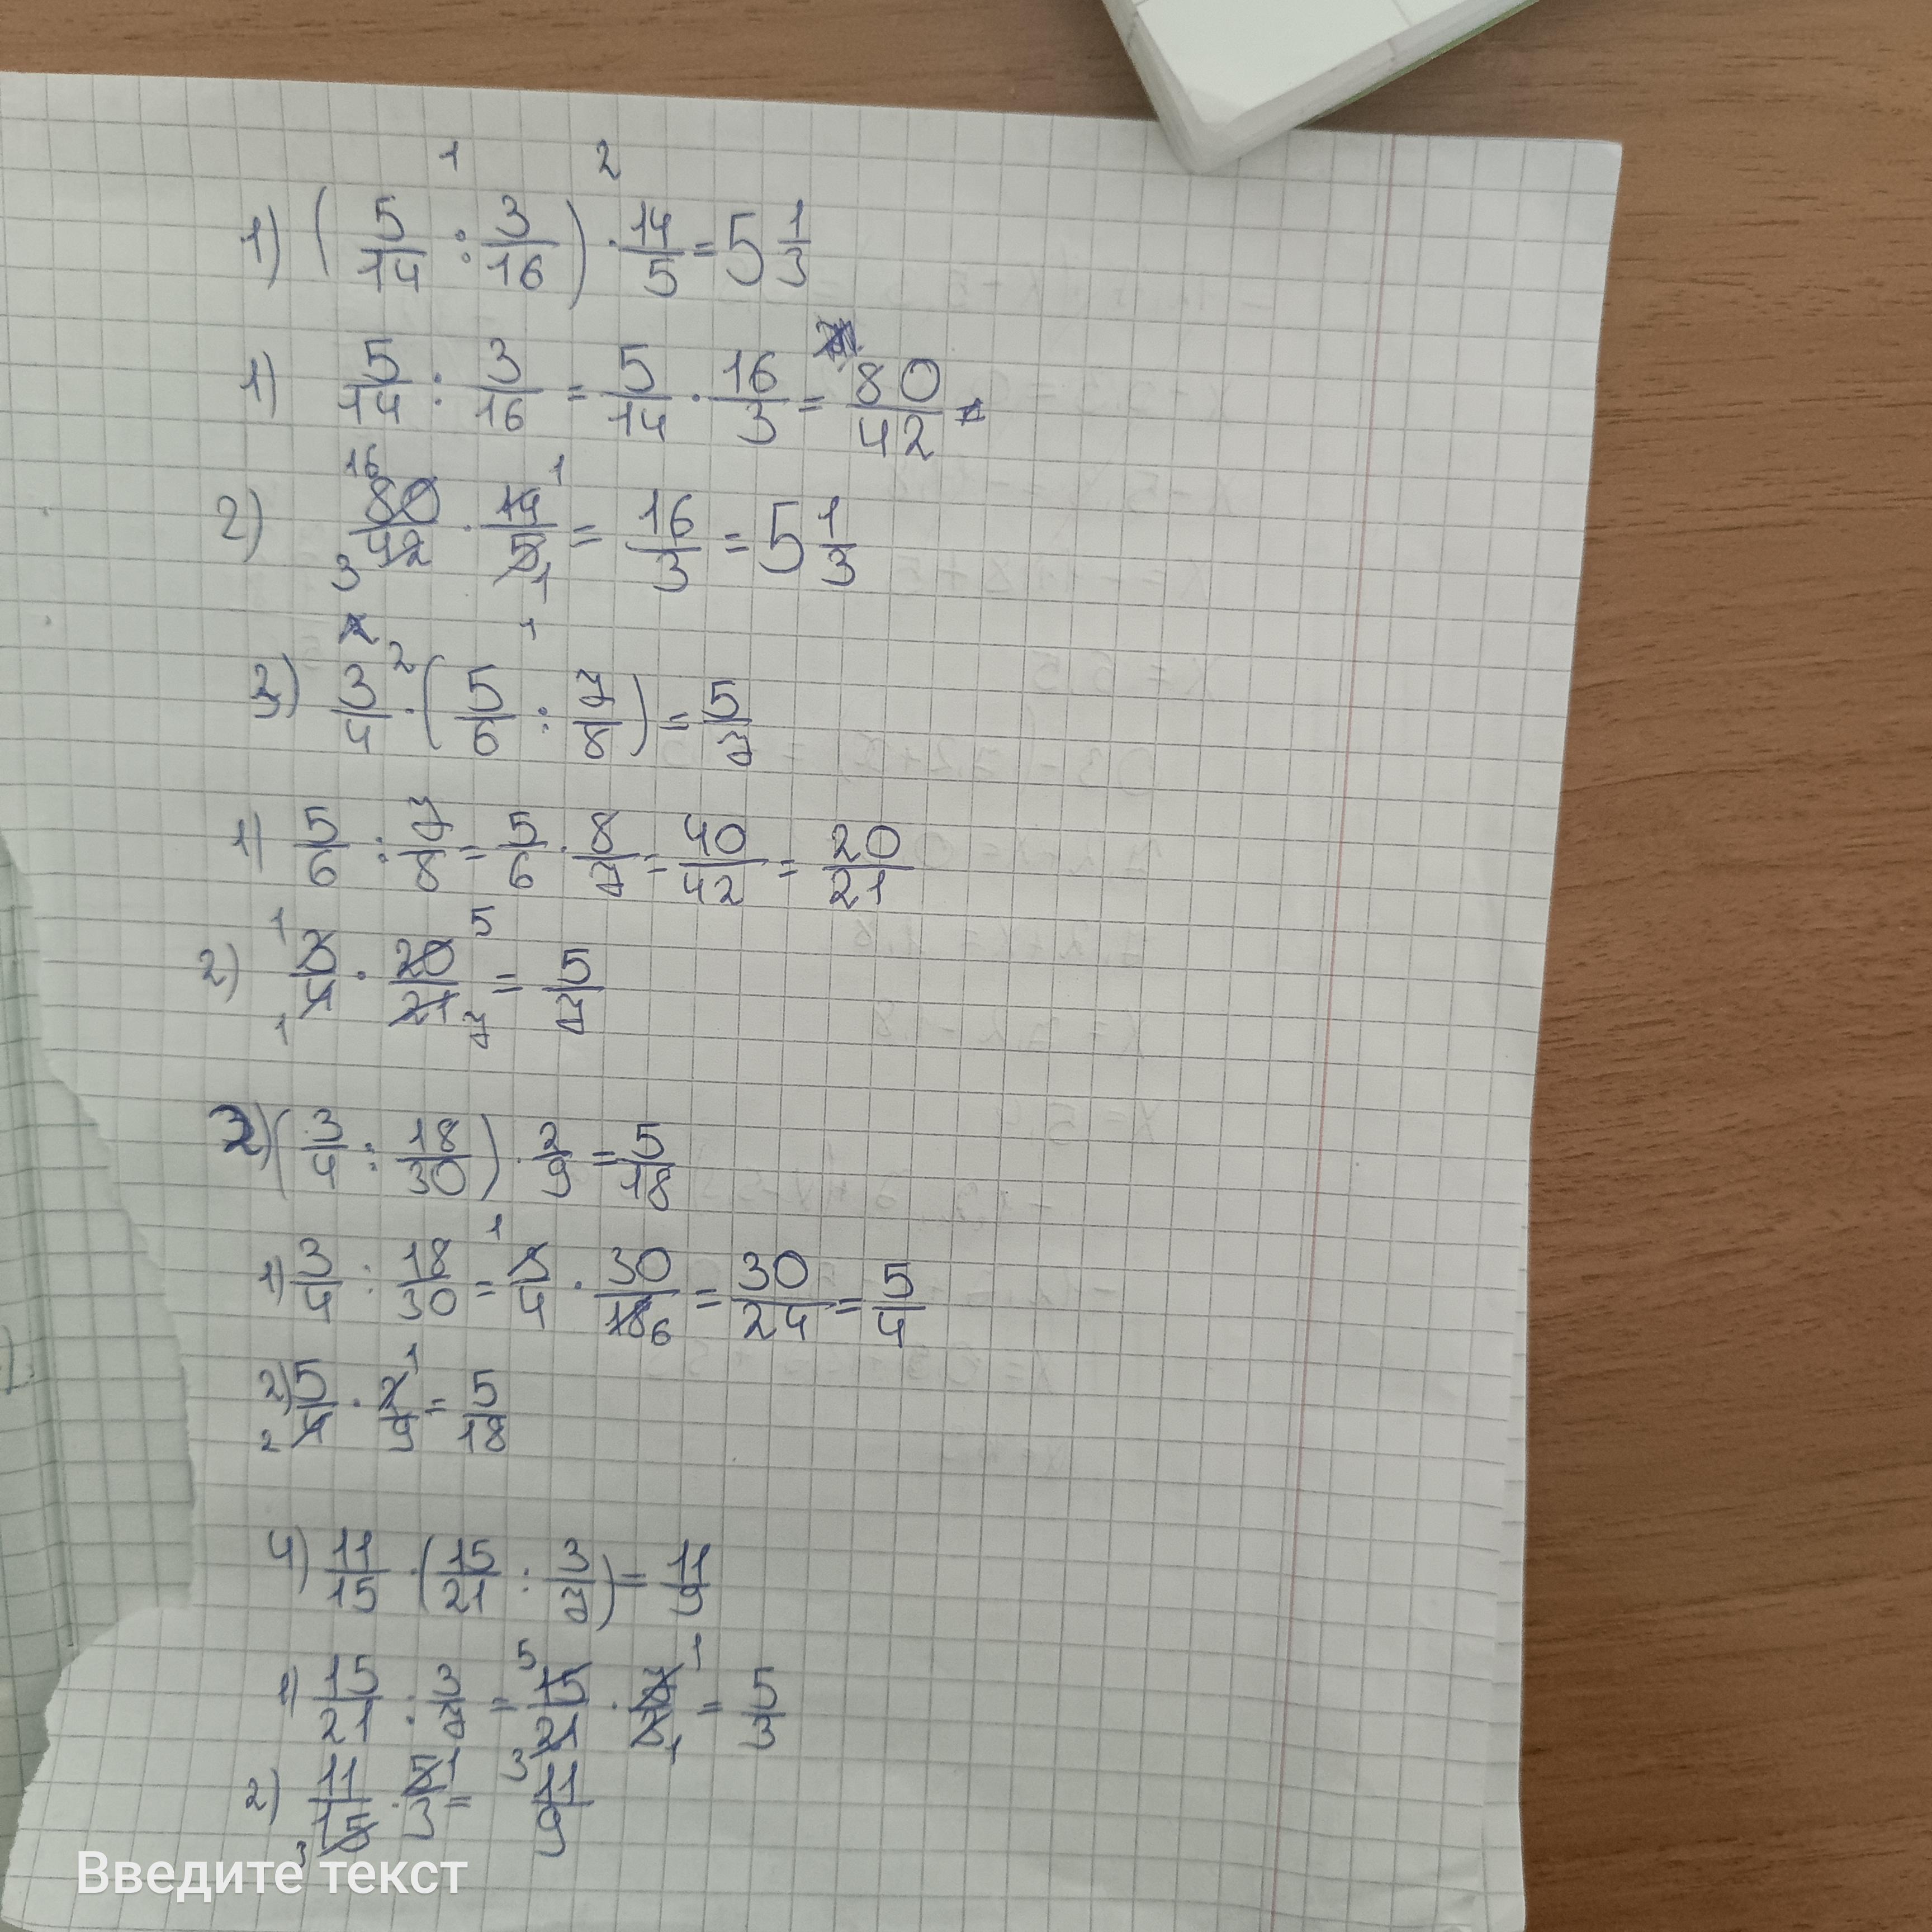 1 2
1) (5/14 : 3/16) · 14/5 = 5 1/3
1) 5/14 : 3/16 = 5/14 · 16/3 = 80/42 =
2) 80/42 · 14/5 = 16/3 = 5 1/3
2 1
2) 3/4 · (5/6 : 7/8) = 5/7
1) 5/6 : 7/8 = 5/6 · 8/7 = 40/42 = 20/21
2) 3/4 · 20/21 = 5/7
3) (3/4 : 18/30) · 2/9 = 5/18
1) 3/4 : 18/30 = 3/4 · 30/18 = 30/24 = 5/4
2) 5/4 · 2/9 = 5/18
4) 11/15 · (15/21 : 3/7) = 11/9
1) 15/21 : 3/7 = 15/21 · 7/3 = 5/3
2) 11/15 · 5/3 = 11/9
Введите текст